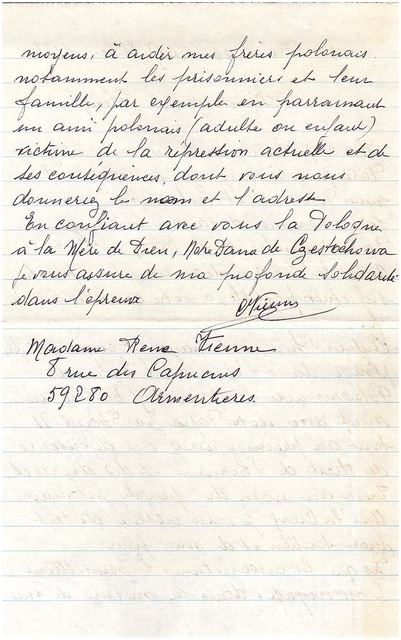 moyens, à aider mes frères polonais
notamment les prisonniers et leur
famille, par exemple en parrainant
un ami polonais (adulte ou enfant)
victime de la répression actuelle et de
ses conséquences, dont vous nous
donneriez le nom et l'adresse
En confiant avec vous la Pologne
à la Mère de Dieu, Notre Dame de Czestochowa
je vous assure de ma profonde solidarité
dans l'épreuve
Madame Rene Fienne
8 rue des Capucins
59280 Armentières.